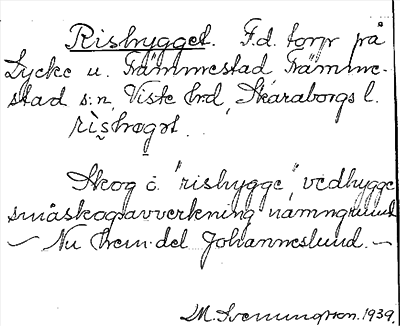 Rishygget. F.d. torp på
Lycke u. Främmestad, Främme-
stad s:n, Viste hrd, Skaraborgs l.
rìshøgət.
Skog o. "rishygge", vedhygge,
småskogsavverkning namngrund
— Nu hem.del Johanneslund. —
M. Svenungson. 1939.